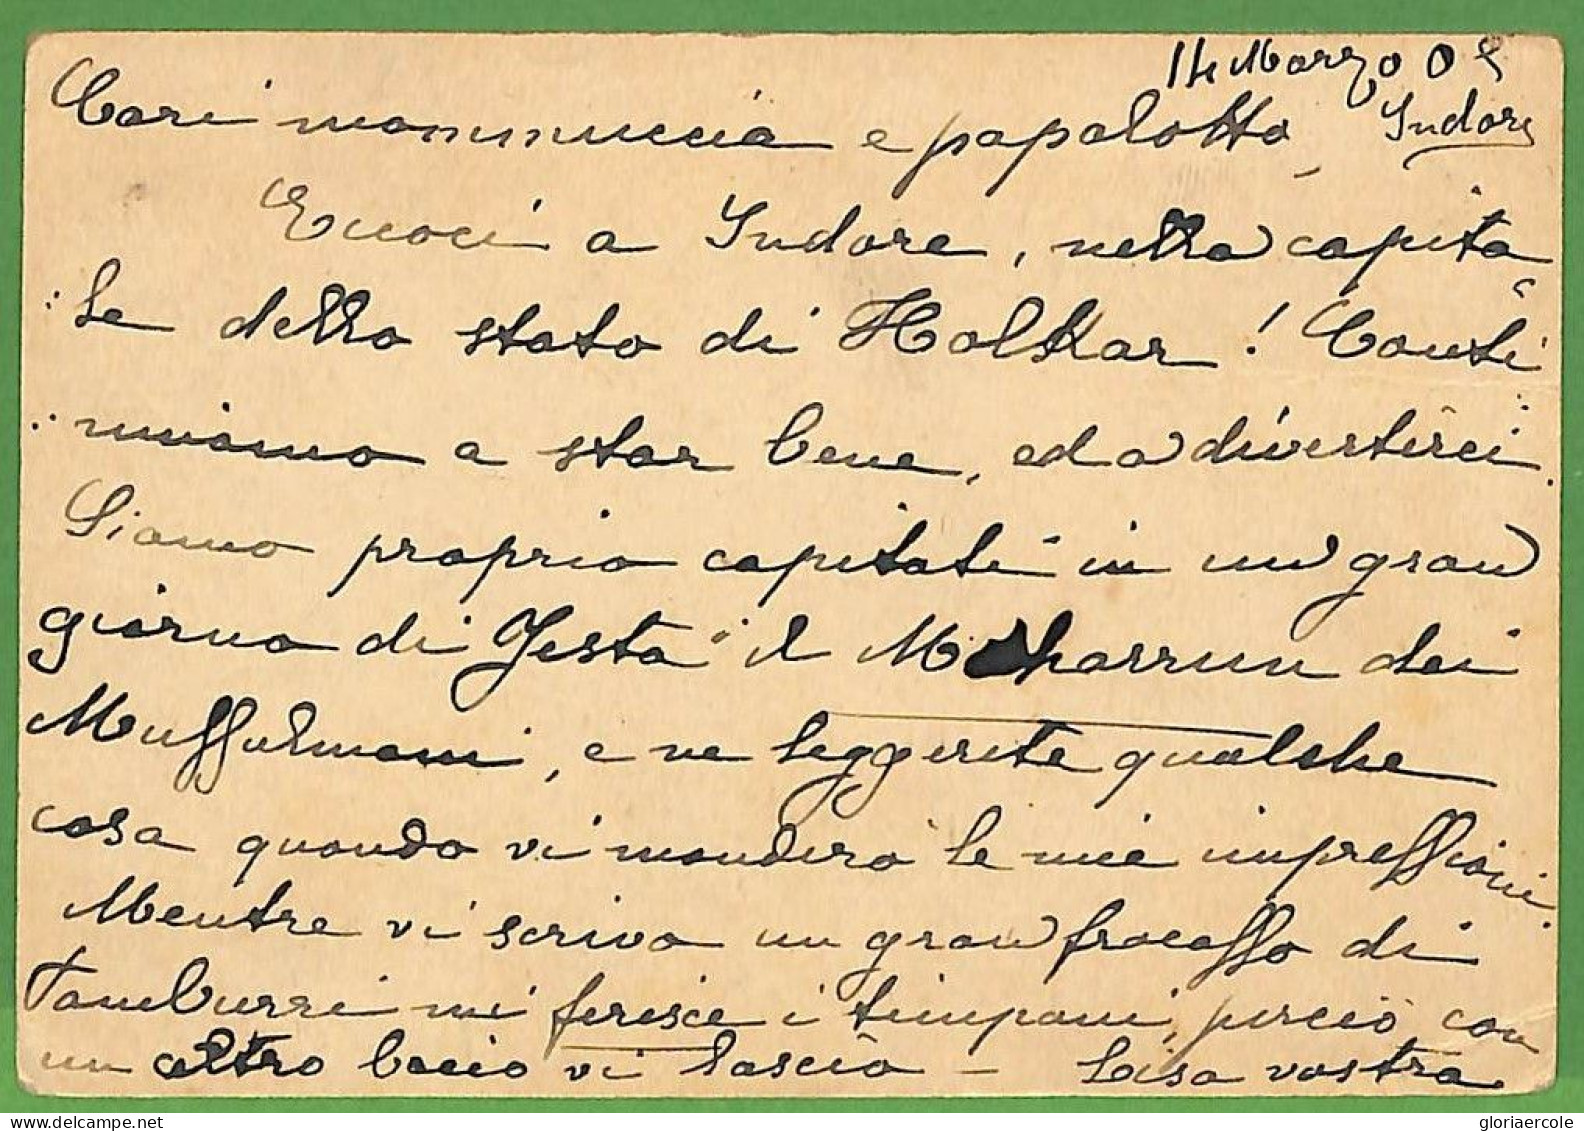 14 Marzo 05
Indore
Cari mammuccia e papalotto,
Eccoci a Indore, nella capita
le dello stato di Holkar! Conti
nuiamo a star bene, ed a divertirci.
Siamo proprio capitati in un gran
giorno di festa il Moharrum dei
Mussulmani, e ne leggerete qualche
cosa quando vi manderò le mie impressioni.
Mentre vi scrivo un gran fracasso di
tamburri mi ferisce i timpani, perciò con
un altro bacio vi lascio - Lisa vostra
gloriaercole